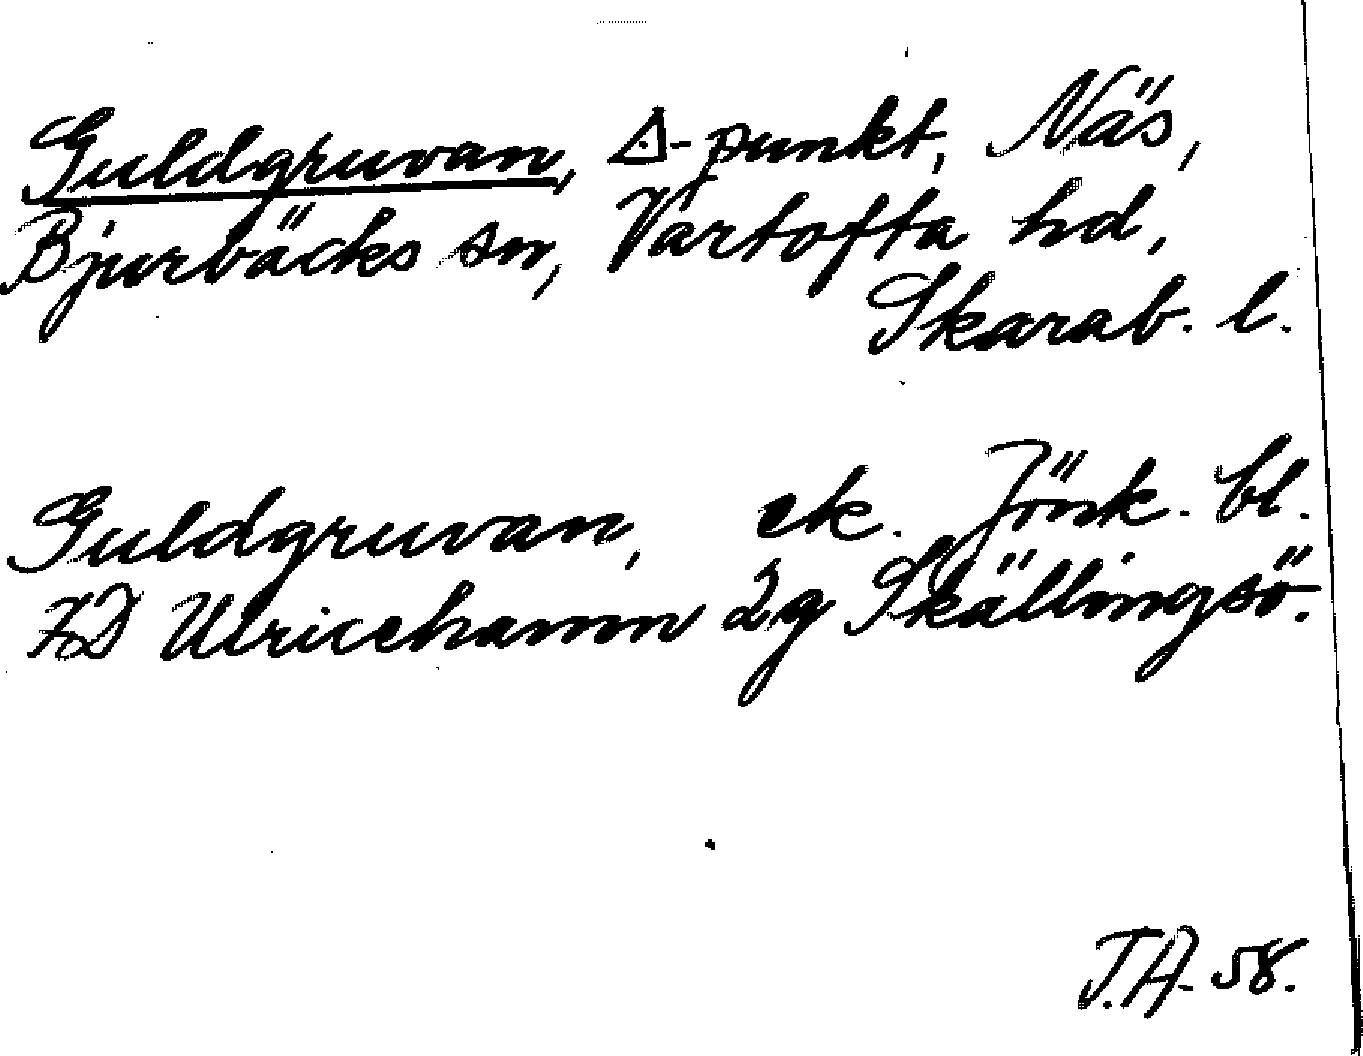 Guldgruvan, △-punkt, Näs,
Bjurbäcks sn, Vartofta hd,
Skarab. l.
Guldgruvan, ek. Jönk. bl.
7D Ulricehamn 2g Skällingsö.
J.A. 58.